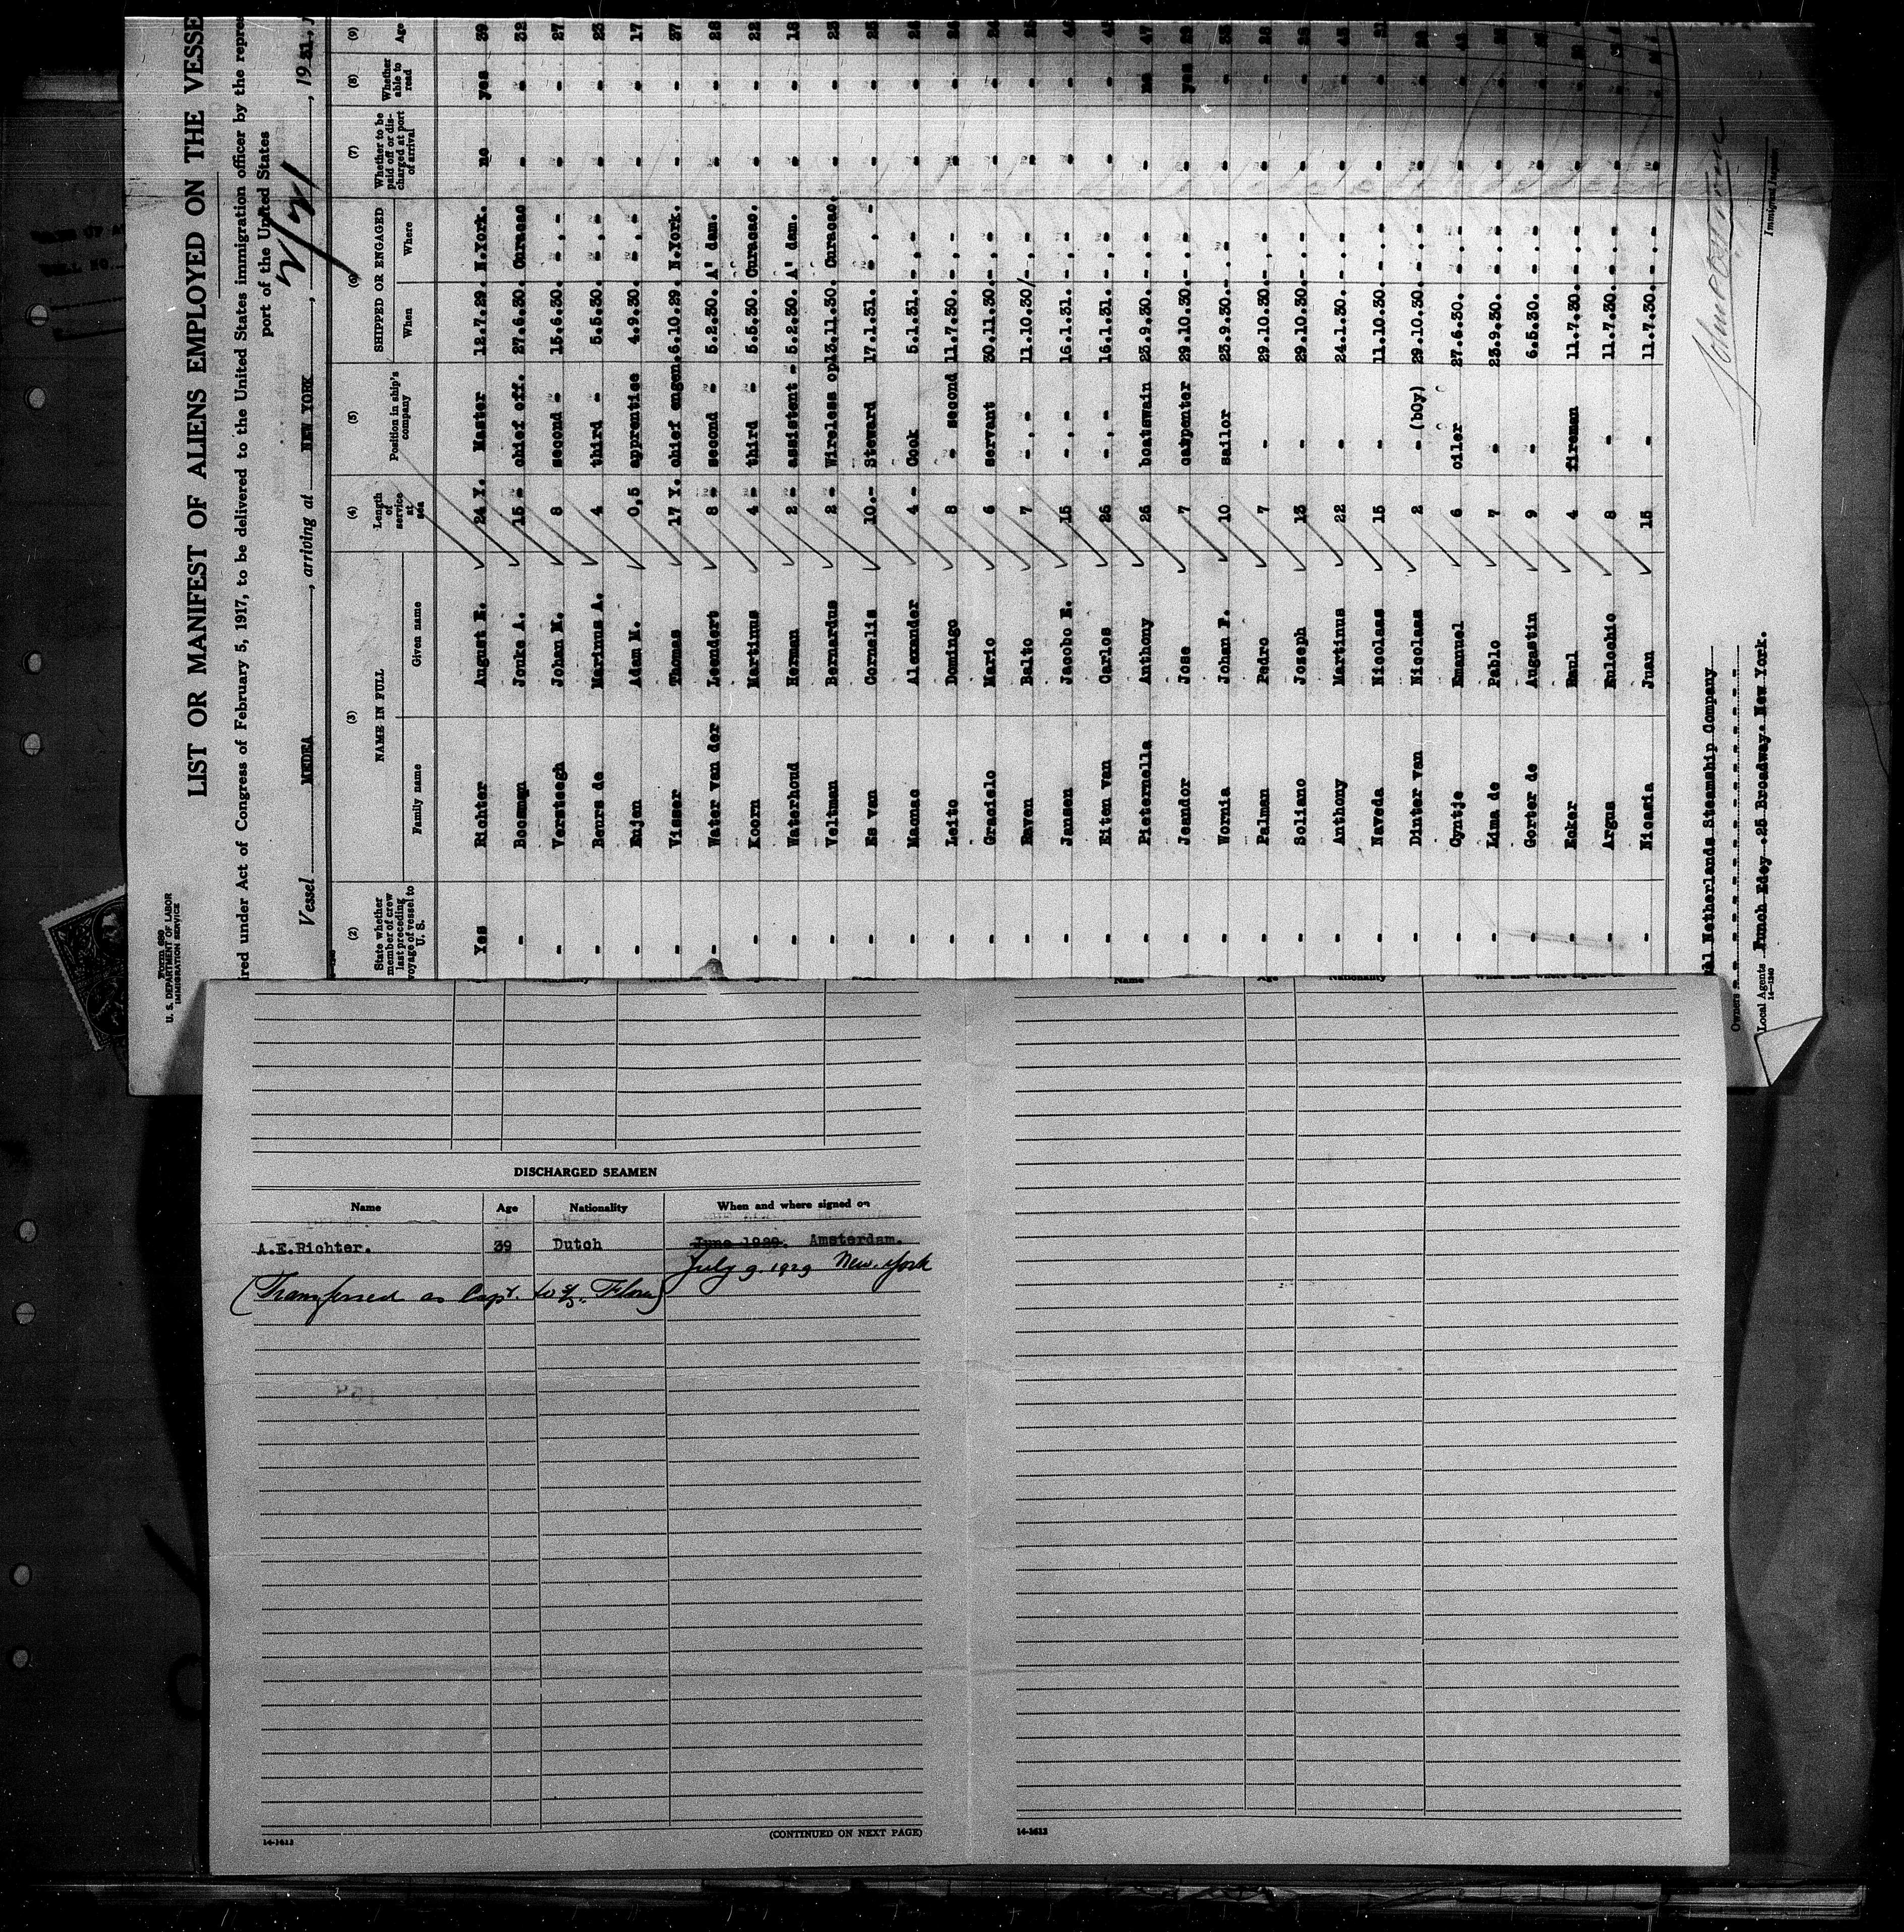 Form 689
U. S. DEPARTMENT OF LABOR
IMMIGRATION SERVICE
LIST OR MANIFEST OF ALIENS EMPLOYED ON THE VESSE
ired under Act of Congress of February 5, 1917, to be delivered to the United States immigration officer by the repres
port of the United States
Vessel MEDEA, arriving at NEW YORK, , 1931,
(2) (3) (4) (5) (6) (7) (8) (9)
State whether member of crew last preceding voyage of vessel to U. S. NAME IN FULL Length of service at sea Position in ship's company SHIPPED OR ENGAGED Whether to be paid off or discharged at port of arrival Whether able to read Age
Family name Given name When Where
Yes Richter August E. 24 Y. Master 12.7.29. N.York. no yes 39
- Boosman Jouke A. 15 - chief off. 27.6.30. Curacao - - 32
- Versteegh Johan M. 8 second - 15.6.30. -,- - - 27
- Beurs de Marinus A. 4 third - 5.5.30. -,- - - 23
- Eujen Adam M. 0,5 apprentice 4.9.30. -,- - - 17
- Visser Thomas 17 Y. chief engen. 6.10.29. N.York. - - 37
- Water van der Leendert 8 - second - 5.2.30. A'dam. - - 28
- Koorn Martinus 4 - third - 5.5.30. Curacao. - - 22
- Waterhoud Herman 2 - assistent - 5.2.30. A'dam. - - 18
- Veltman Bernardus 2 - Wireless op. 13.11.30. Curacao. - - 23
- Es van Cornelis 10.- Steward 17.1.31. -,- - - 25
- Macnac Alexander 4 - Cook 5.1.31. -,- - -
- Leito Domingo 8 - second 11.7.30. -,- - -
- Gracielo Mario 6 servant 30.11.30. -,- - -
- Raven Balto 7 -,- 11.10.30/ -,- - -
- Jansen Jacobo E. 15 -,- 16.1.31. -,- - -
- Eiten van Carlos 26 -,- 16.1.31. -,- - -
- Pieternella Anthony 26 boatswain 23.9.30. -,- - no 47
- Jeandor Jose 7 carpenter 29.10.30. -,- - yes
- Wornia Johan F. 10 sailor 23.9.30. -,- - -
- Palman Pedro 7 - 29.10.30. -,- - -
- Soliano Joseph 13 - 29.10.30. -,- - -
- Anthony Martinus 22 - 24.1.30. -,- - -
- Naveda Nicolaas 15 - 11.10.30. -,- - -
- Dinter van Nicolaas 2 - (bOy) 29.10.30. -,- - -
- Cyntje Emanuel 6 oiler 27.6.30. -,- - -
- Lima de Pablo 7 - 23.9.30. -,- - -
- Gorter de Augustin 9 - 6.5.30. -,- - -
- Ecker Raul 4 fireman 11.7.30. -,- - -
- Argus Eulochio 8 - 11.7.30. -,- - -
- Nicasia Juan 15 - 11.7.30. -,- - -
al Netherlands Steamship Company
Owners
Local Agents Funch Edey .25 Broadway. New York.
14-1240
Immigrant Inspector
Name Age Nationality When and where signed on
DISCHARGED SEAMEN
Name Age Nationality When and where signed on
A.E.Richter. 39 Dutch June 1929. Amsterdam.
July 9. 1929 New-York
(Transferred as Capt. to S/S. Flora)
14-1613
(CONTINUED ON NEXT PAGE)
14-1613